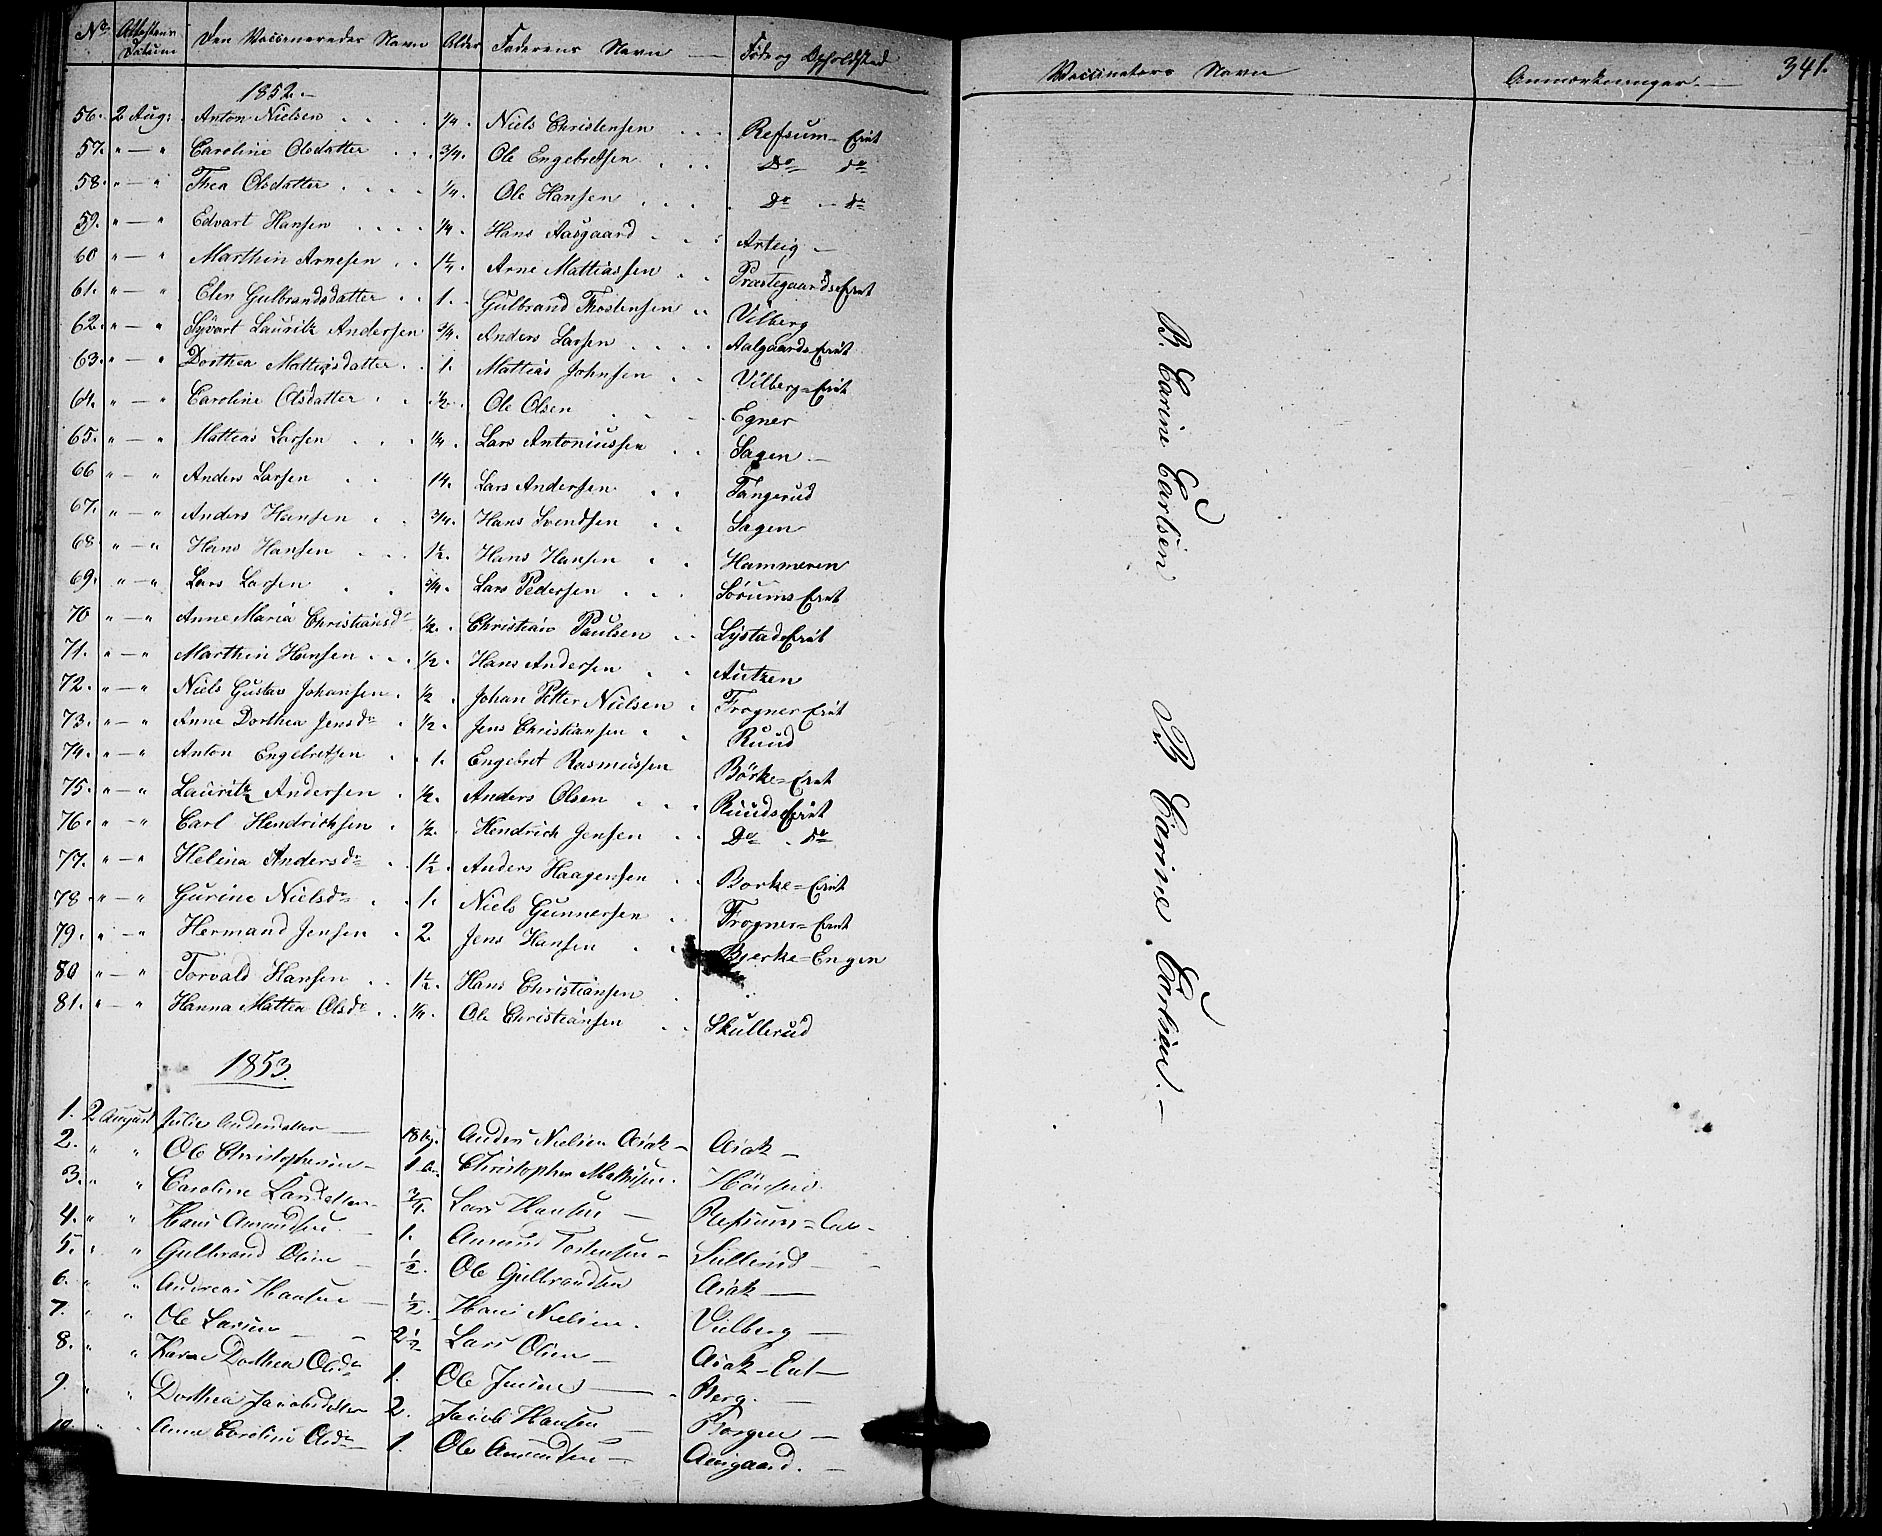 No. Attestens Datum Den Vaccineredes Navn Alder Faderens Navn Føde og Opholdsted Vaccinators Navn Anmærkninger. 341.
1852.
56. 2 Aug: Anton Nielsen 1/4. Niels Christensen Refsum-Eiet
57. " — " Caroline Olsdatter 3/4. Ole Engebretsen Do do
58. " — " Thea Olsdatter 1/4. Ole Hansen Do do
59. " — " Edvart Hansen 1/4. Hans Aasgaard Arteig
60 " — " Marthin Arnesen 1 1/4. Arne Mattiassen Præstegaardseiet
61. " — " Elen Gulbrandsdatter 1. Gulbrand Thostensen Vilberg
62. " — " Syvart Lauritz Andersen 3/4. Anders Larsen Aalgaardseiet
63. " — " Dorthea Mattiasdatter 1. Mattias Johnsen Vilberg-Eiet
64. " — " Caroline Olsdatter 1/2. Ole Olsen Egner
65. " — " Mattias Larsen 1/4. Lars Antoniussen Sagen
66 " — " Anders Larsen 14. Lars Andersen Tangerud
67. " — " Anders Hansen 3/4. Hans Svendsen Sagen
68. " — " Hans Hansen 1 1/2. Hans Hansen Hammeren
69. " — " Lars Larsen 3/4. Lars Pedersen Sørums Eiet
70 " — " Anne Maria Christiansd. 1/2. Christian Paulsen Lystadseiet
71. " — " Marthin Hansen 1/2. Hans Andersen Autzen
72. " — " Niels Gustav Johansen 1/2. Johan Petter Nielsen Frogner Eiet
73. " — " Anne Dorthea Jensdr 1/2. Jens Christiansen Ruud
74. " — " Anton Engebretsen 1. Engebret Rasmussen Börke-Eiet
75. " — " Lauritz Andersen 1/2. Anders Olsen Ruudseiet
76. " — " Carl Hendrichsen 1/2. Hendrich Jensen Do do
77. " — " Helina Andersdr 1 1/2. Anders Haagensen Borke-Eiet
78 " — " Gurine Nielsdr 1. Niels Gunnersen Frogner-Eiet
79. " — " Hermand Jensen 2. Jens Hansen Bjerke-Engen
80 " — " Torvald Hansen 1 1/2. Hans Christiansen
81. " — " Hanna Mattea Olsdr 1/4. Ole Christiansen Skullerud
1853.
1. 2 August Julie Andersdatter Anders Nielsen Asak Asak
2. " " Ole Christophersen Christopher Mathisen
3. " " Caroline Larsdatter 3/4. Lars Hansen Refsum-Eie
4. " " Hans Amundsen 1. Amund Tostensen
5. " " Gulbrand Olsen 1/2. Ole Gulbrandsen Asak
6. " " Andreas Hansen 1/2. Hans Nielsen. Vilberg
7. " " Ole Larsen 2 1/2 Lars Olsen Asak-Eiet
8. " " Karen Dorthea Olsdr 1. Ole Jensen Berg.
9. " " Dorthea Jacobsdatter 2. Jacob Hansen
10. " " Anne Caroline Olsdr 1. Ole Amundsen Aasgaard.
B. Carine Carlsen
B Carine Carlsen.